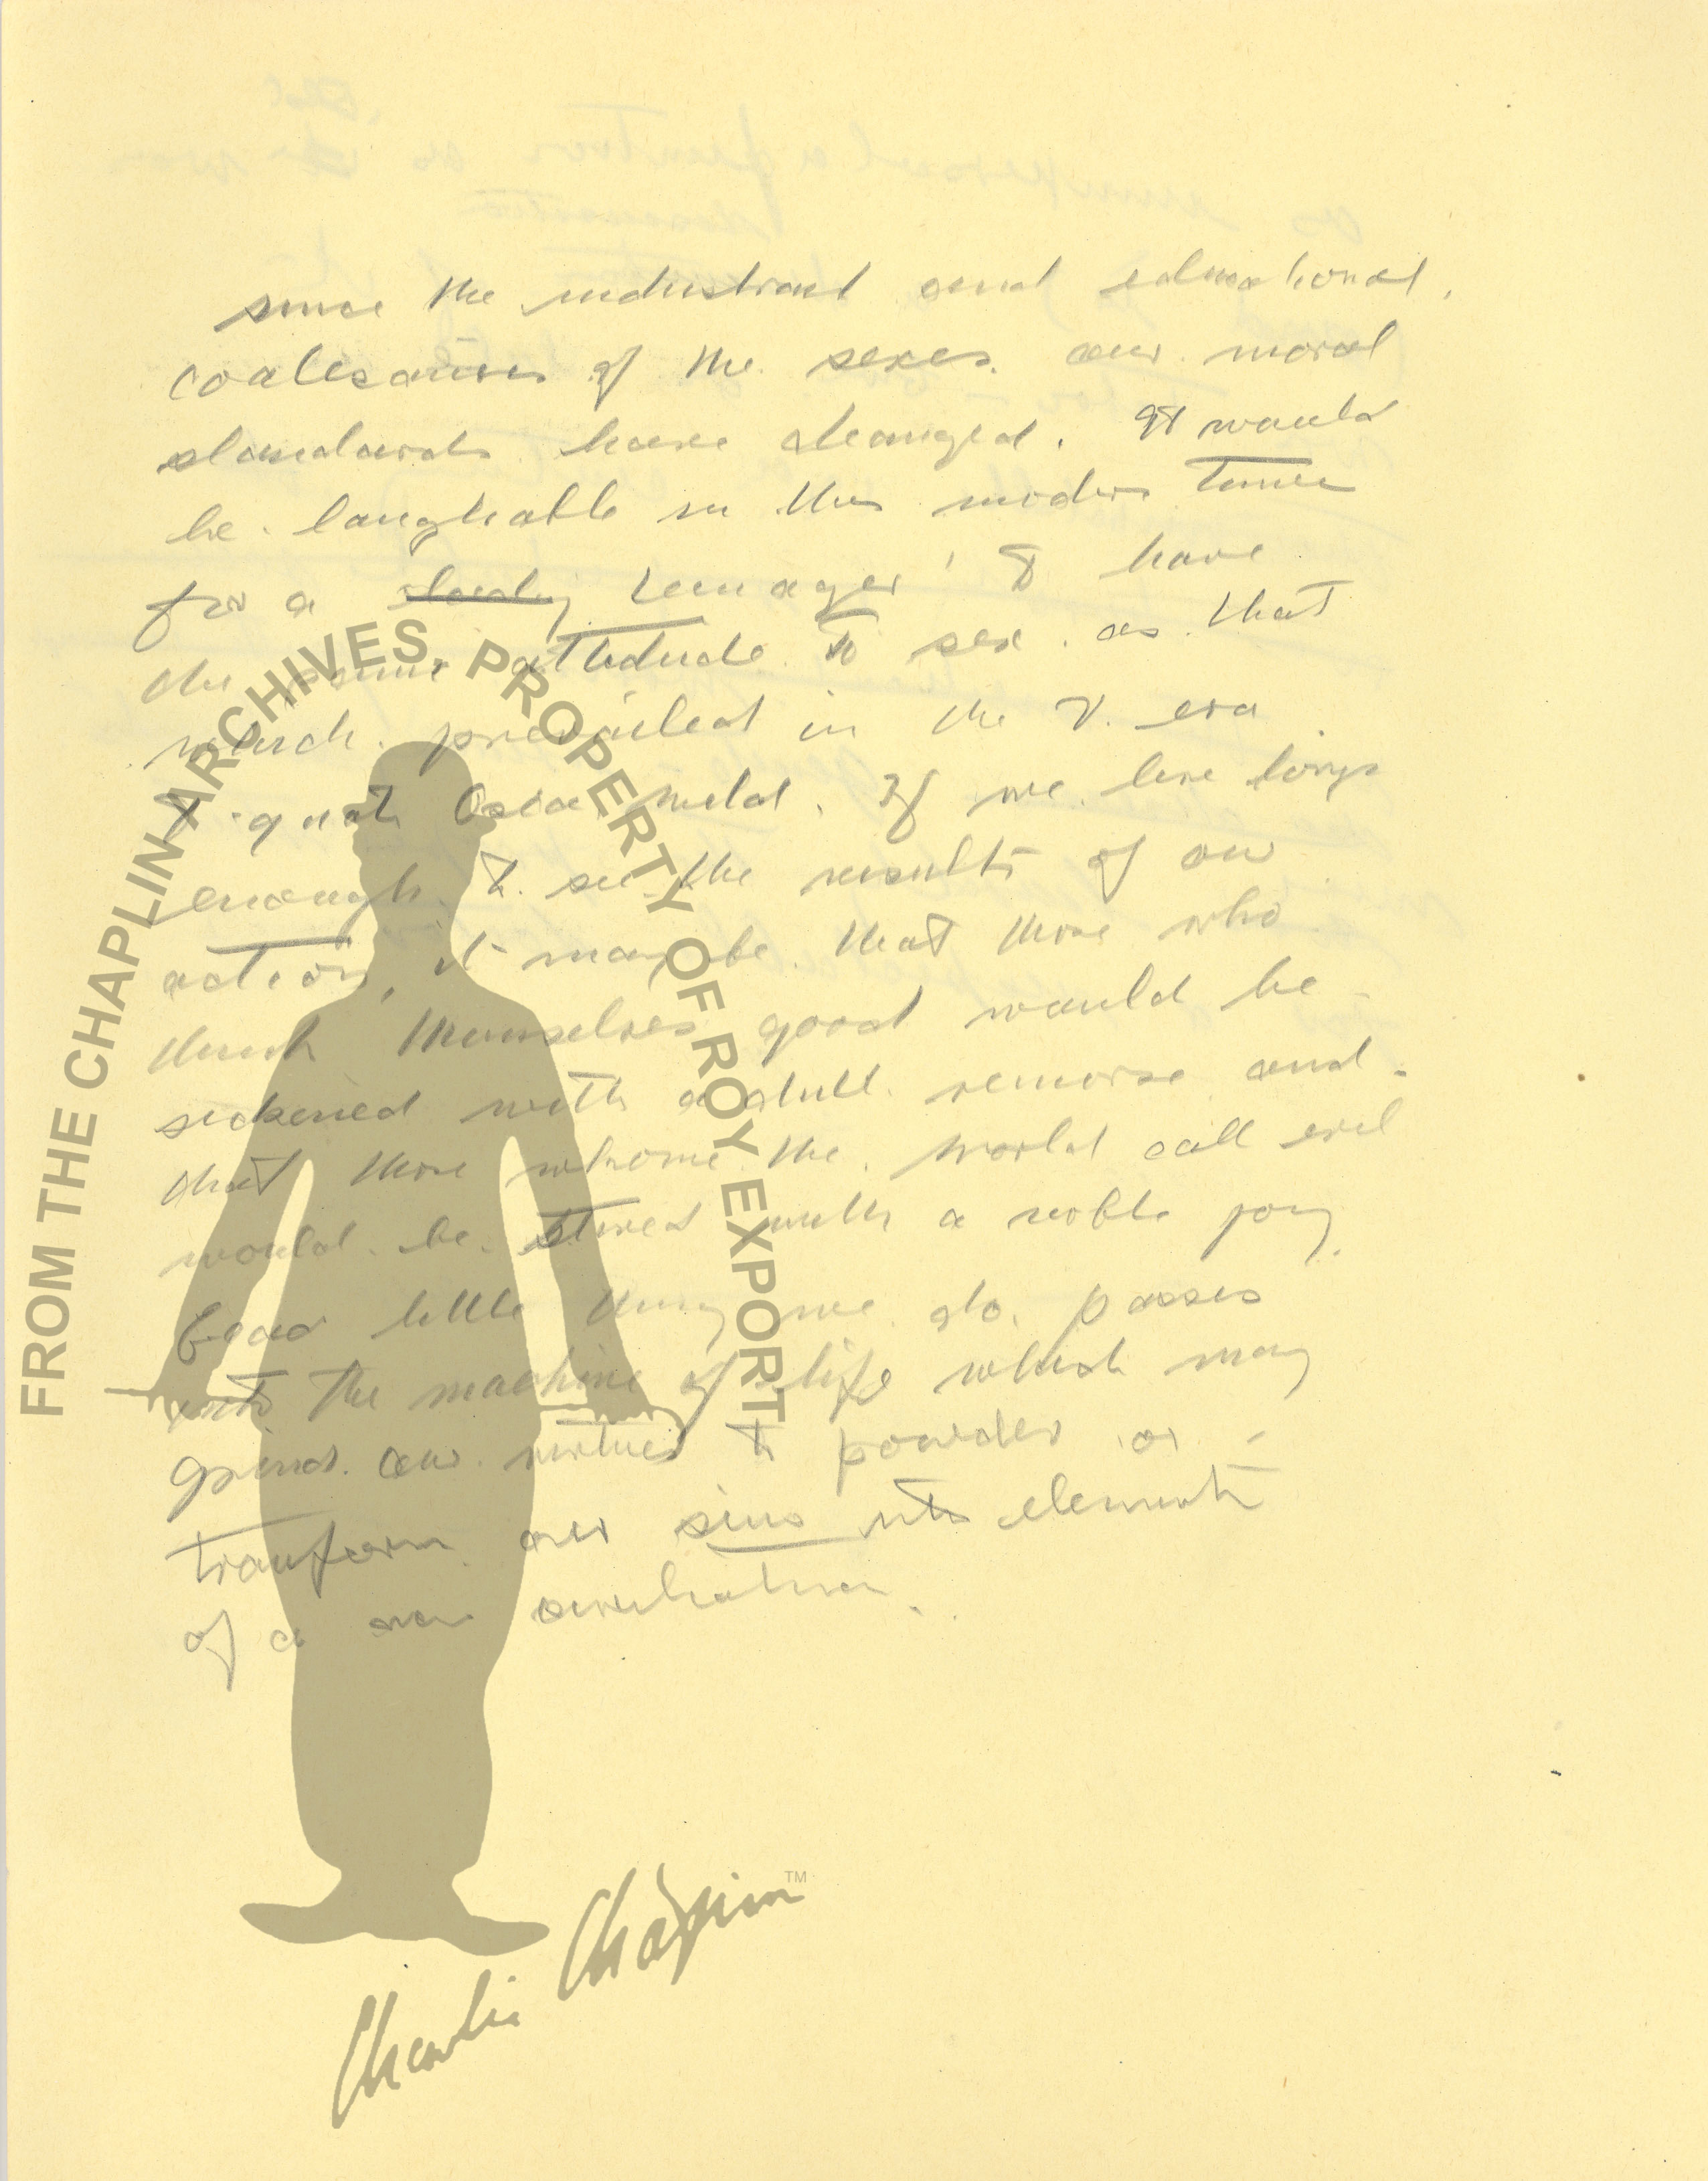 since the industrial and educational,
coalesances of the sexes. our moral
standards have changed. It would
be laughable in this modern times
for a teenager to have
the same attitude to sex as that
which prevailed in the V. era
I quote Oscar Wild. If we live long
enough to see the results of our
action, it may be that those who
think themselves good would be
sickened with a dull remorse and
that those whome the world call evil
would be stired with a noble joy.
Each little thing we do passes
into the machine of life which may
grind our virtues to powder or -
tranform our sins into elements
of a new civilization.
FROM THE CHAPLIN ARCHIVES, PROPERTY OF ROY EXPORT
Charlie Chaplin™